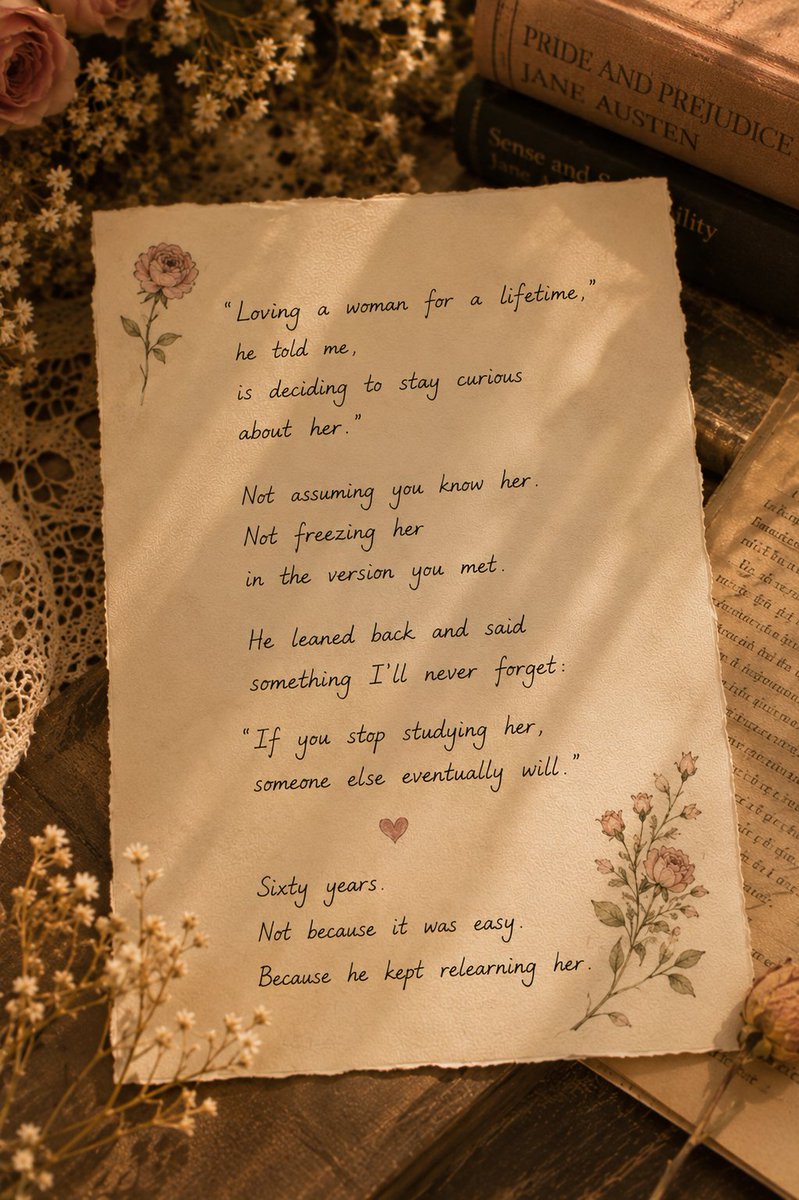 PRIDE AND PREJUDICE
JANE AUSTEN
Sense and
Jane
“Loving a woman for a lifetime,”
he told me,
is deciding to stay curious
about her.”
Not assuming you know her.
Not freezing her
in the version you met.
He leaned back and said
something I'll never forget:
“If you stop studying her,
someone else eventually will.”
Sixty years.
Not because it was easy.
Because he kept relearning her.